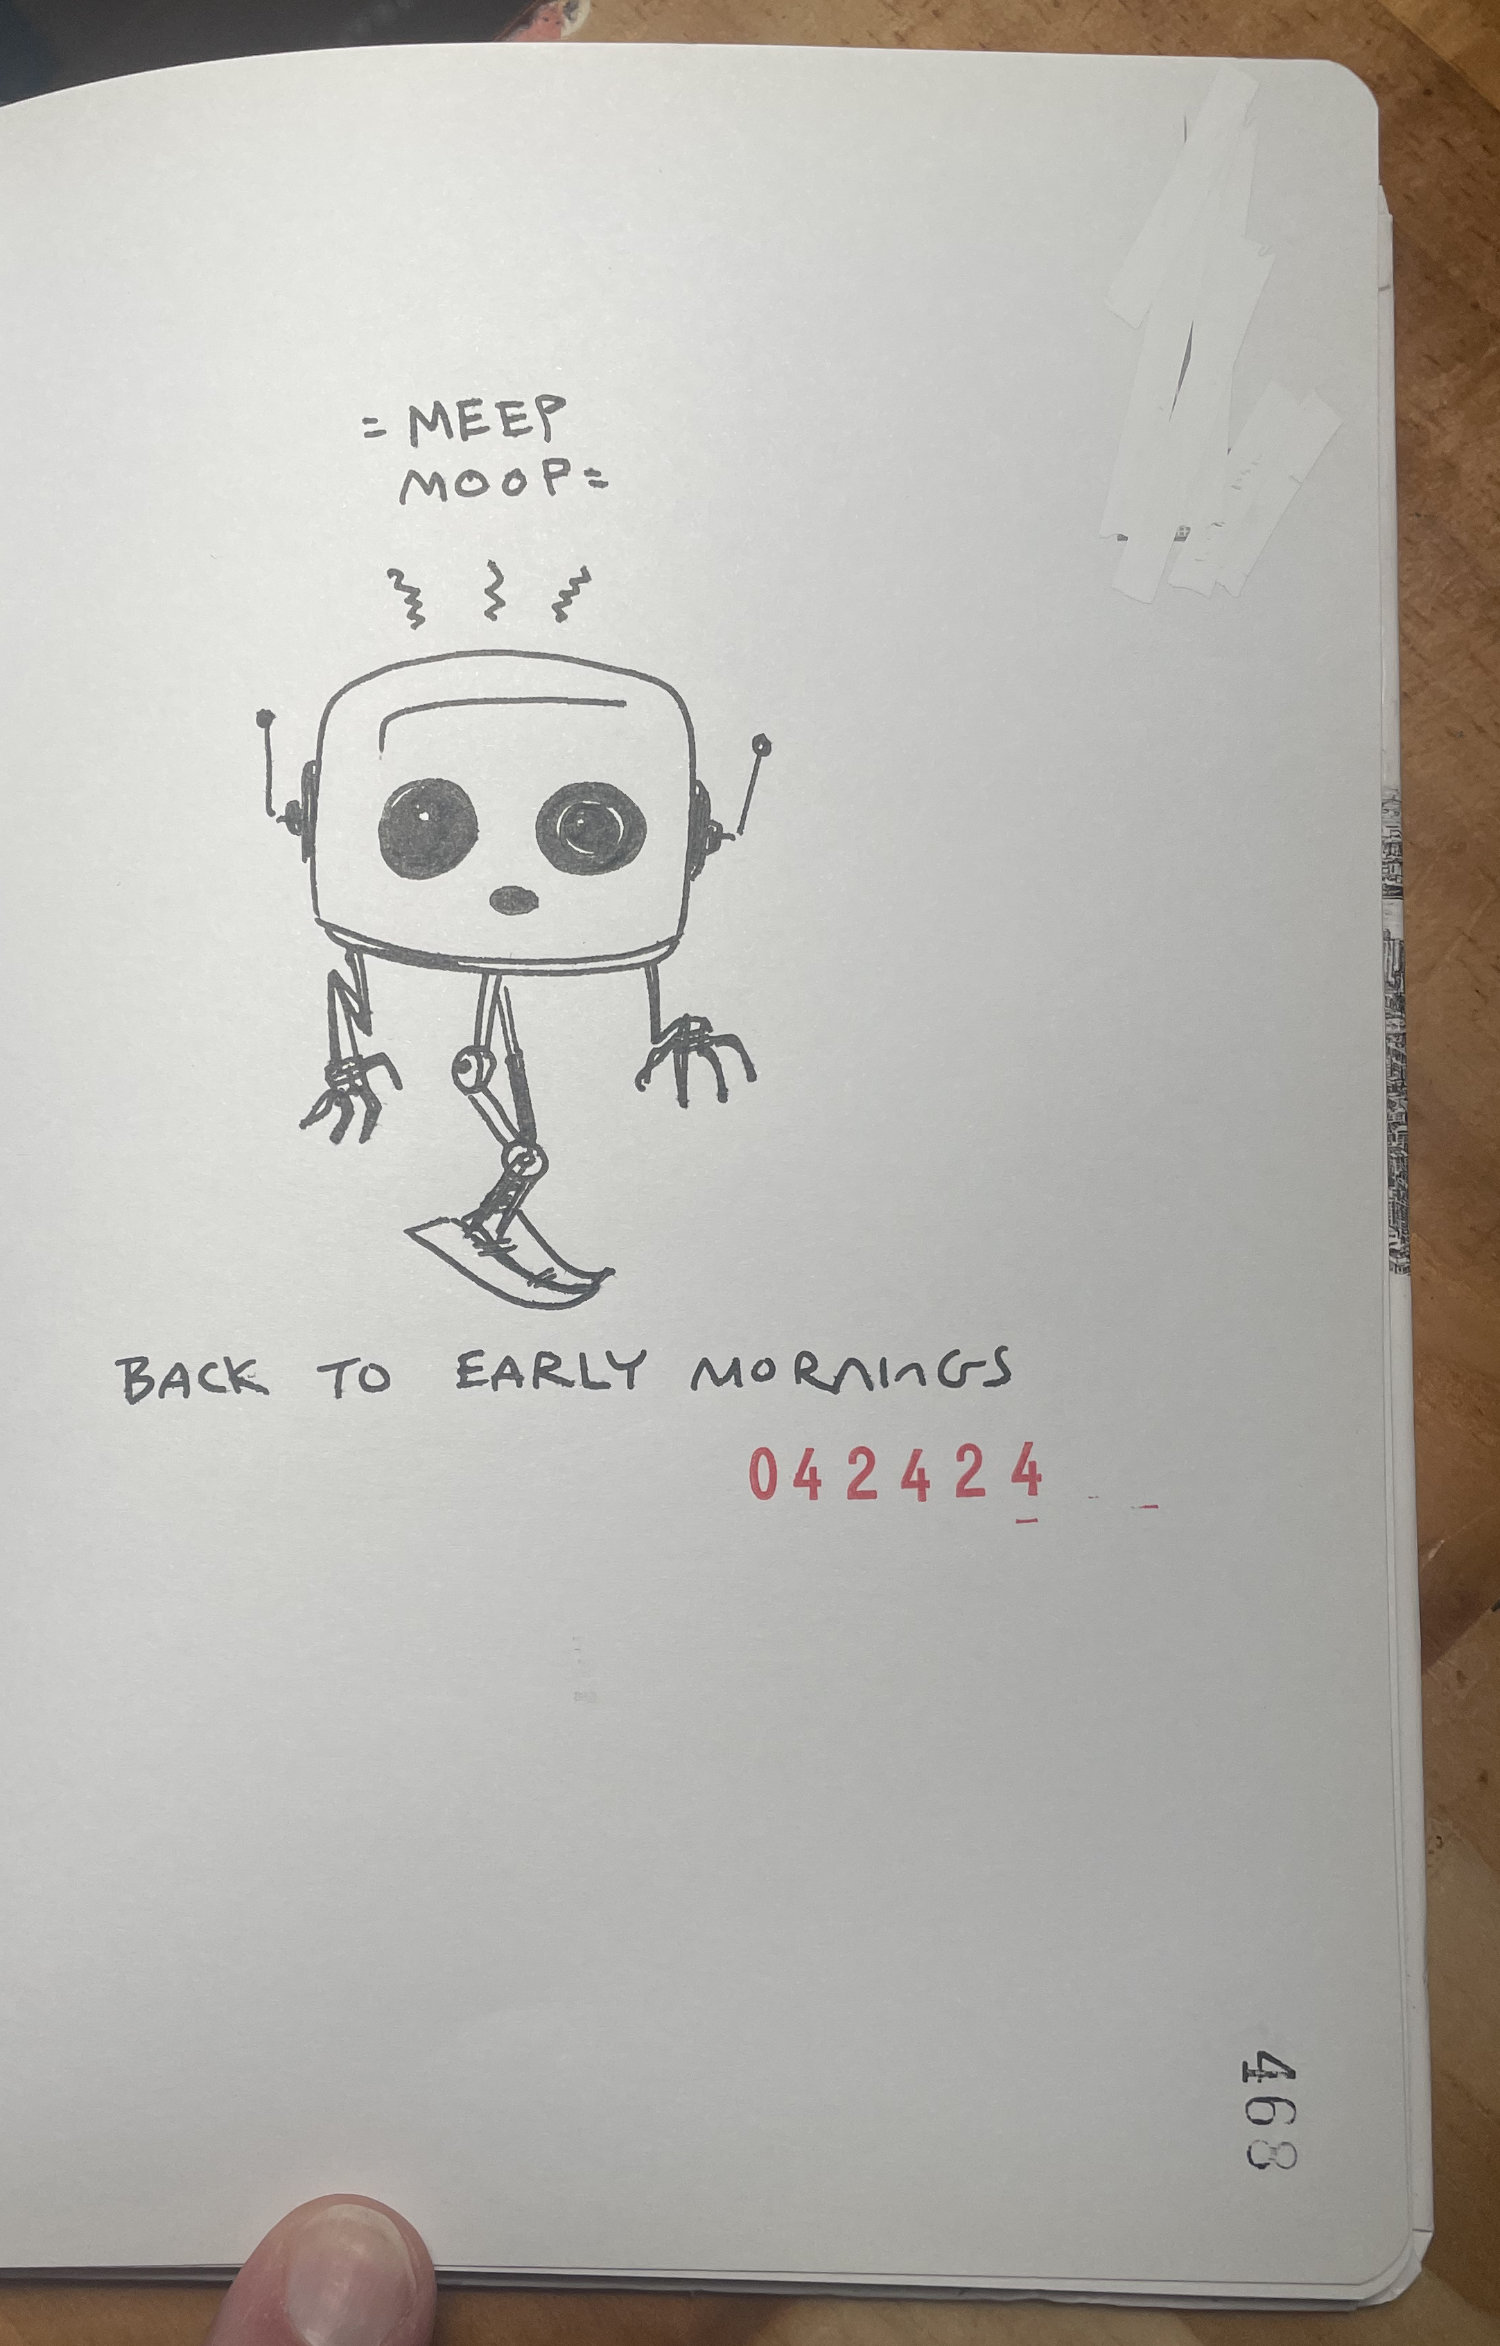 = MEEP
MOOP =
BACK TO EARLY MORNINGS
042424
468